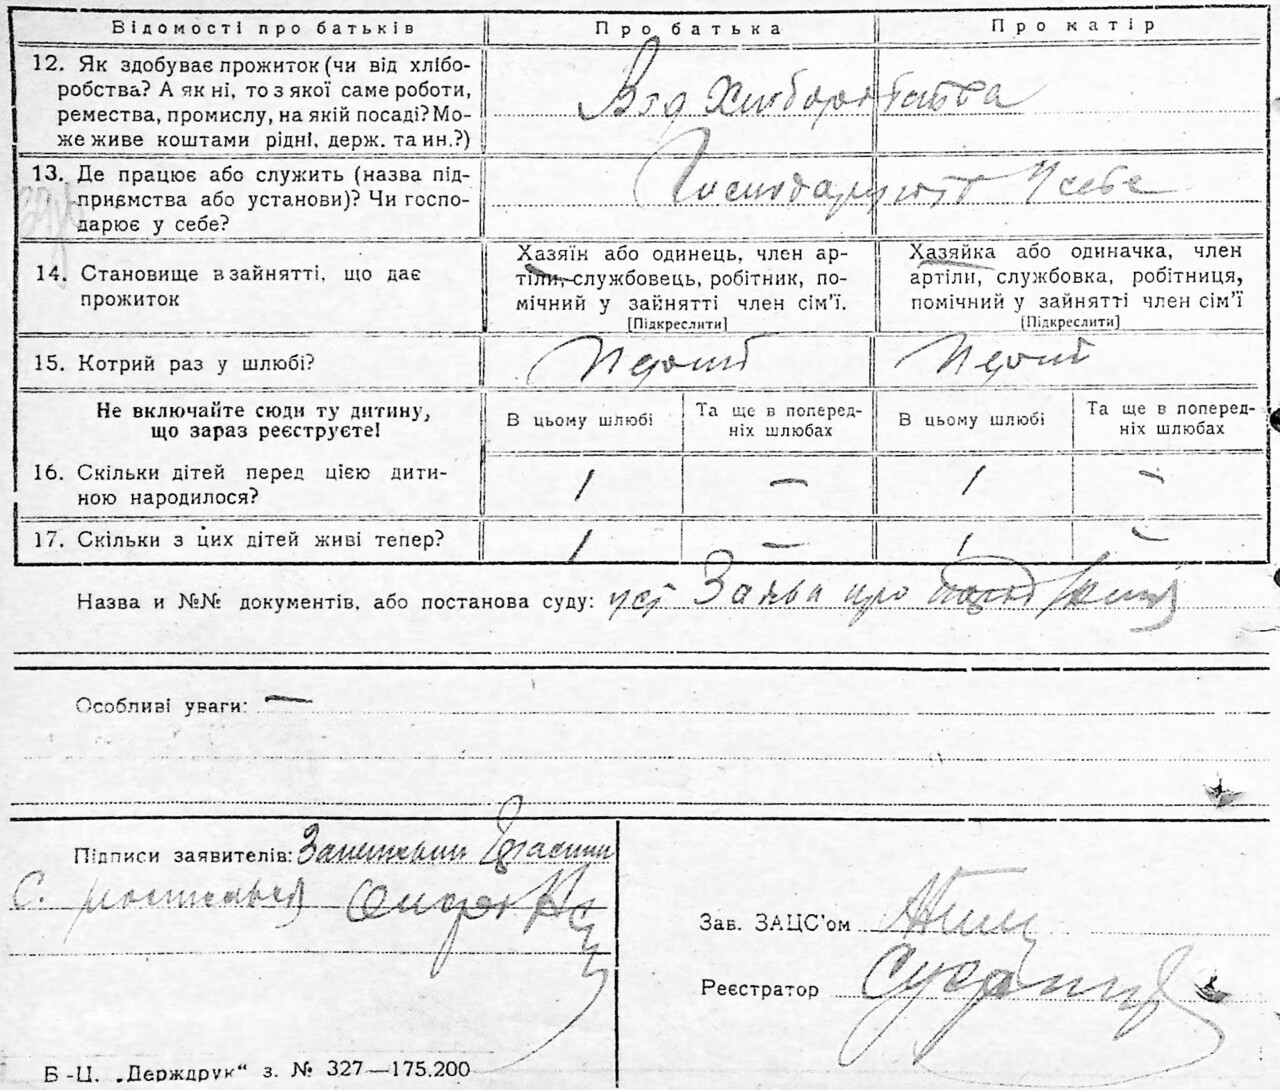 Відомості про батьків Про батька Про матір
12. Як здобуває прожиток (чи від хлібо-
робства? А як ні, то з якої саме роботи,
ремества, промислу, на якій посаді? Мо-
же живе коштами рідні, держ. та ин.?)
Від Хліборобства
13. Де працює або служить (назва під-
приємства або установи)? Чи госпо-
дарює у себе?
Господарюють У себе
14. Становище в зайнятті, що дає
прожиток
Хазяїн або одинець, член ар-
тіли, службовець, робітник, по-
мічний у зайнятті член сім'ї.
[Підкреслити]
Хазяйка або одиначка, член
артіли, службовка, робітниця,
помічний у зайнятті член сім'ї
[Підкреслити]
15. Котрий раз у шлюбі?
Не включайте сюди ту дитину,
що зараз реєструєте!
В цьому шлюбі Та ще в поперед-
ніх шлюбах В цьому шлюбі Та ще в поперед-
ніх шлюбах
16. Скільки дітей перед цією дити-
ною народилося?
1 — 1 —
17. Скільки з цих дітей живі тепер?
1 — 1 —
Назва и №№ документів, або постанова суду: уст Заява про
Особливі уваги: —
Підписи заявителів:
С.
Зав. ЗАЦС'ом
Реєстратор
Б-Ц. „Держдрук“ з. № 327—175.200